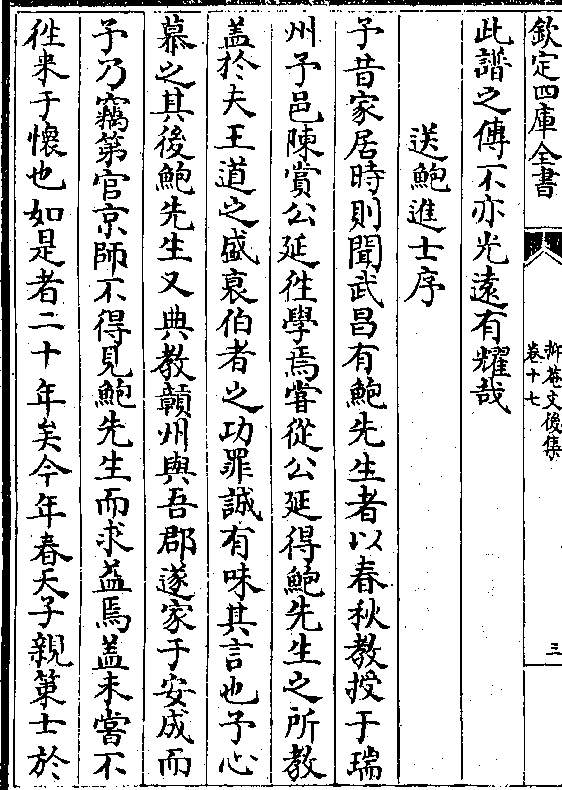 欽定四庫全書
抑菴文後集
卷十七
三
此譜之傳不亦光遠有耀哉
送鮑進士序
予昔家居時則聞武昌有鮑先生者以春秋教授于瑞
州予邑陳賞公延徃學焉嘗從公延得鮑先生之所教
盖於夫王道之盛衰伯者之功罪誠有味其言也予心
慕之其後鮑先生又典教贛州與吾郡遂家于安成而
予乃竊第官京師不得見鮑先生而求益焉盖未嘗不
徃来于懷也如是者二十年矣今年春天子親策士於